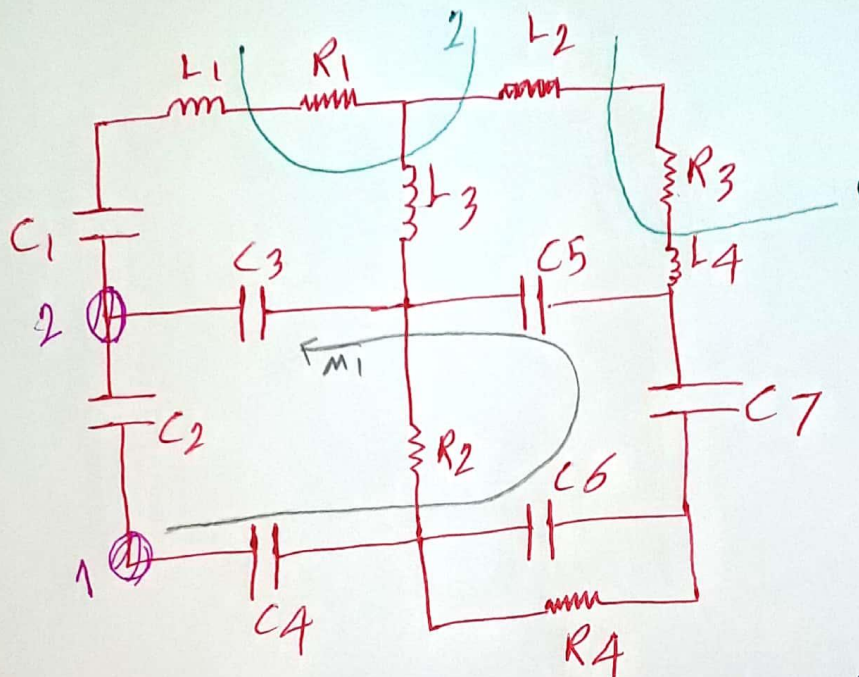 L1
R1
2
L2
R3
L3
L4
C1
C3
C5
2
M1
C7
C2
R2
C6
1
C4
R4